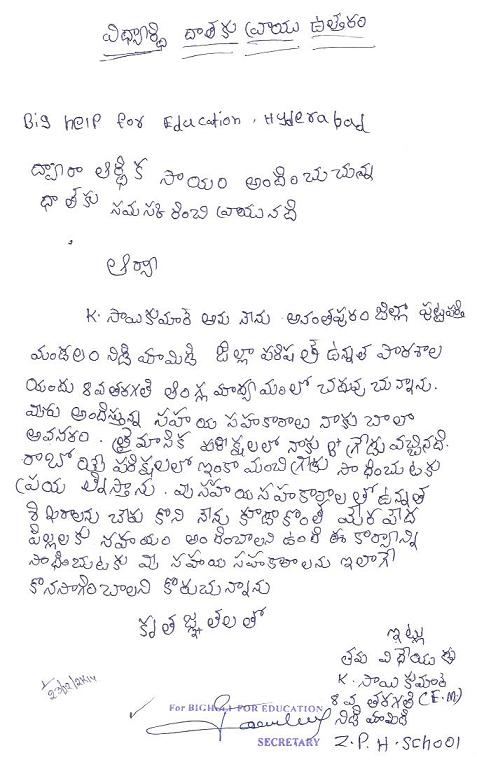 విద్యార్థి దాతకు వ్రాయు ఉత్తరం
Big help for Education, Hyderabad
ద్వారా ఆర్థిక సాయం అందించుచున్న
దాతకు నమస్కరించి వ్రాయునది
ఆర్యా
K. సాయికుమార్ అను నేను అనంతపురం జిల్లా పుట్టపర్తి
మండలం నిడిమామిడి జిల్లా పరిషత్ ఉన్నత పాఠశాల
యందు 8వ తరగతి ఆంగ్ల మాధ్యమంలో చదువుచున్నాను.
మీరు అందిస్తున్న సహాయ సహకారాలు నాకు చాలా
అవసరం. త్రైమాసిక పరీక్షలలో నాకు B+ గ్రేడు వచ్చినది.
రాబోయే పరీక్షలలో ఇంకా మంచి గ్రేడు సాధించుటకు
ప్రయత్నిస్తాను. మీ సహాయ సహకారాలతో ఉన్నత
శిఖరాలను చేరుకొని నేను కూడా కొంత మంది పేద
పిల్లలకు సహాయం అందించాలని ఉంది ఈ కార్యాన్ని
సాధించుటకు మీ సహాయ సహకారాలను ఇలాగే
కొనసాగించాలని కోరుచున్నాను
కృతజ్ఞతలతో
ఇట్లు
తమ విధేయుడు
K. సాయికుమార్
8వ తరగతి (E.M)
నిడిమామిడి
Z.P.H. School
23/12/2014
For BIGHELP FOR EDUCATION
SECRETARY